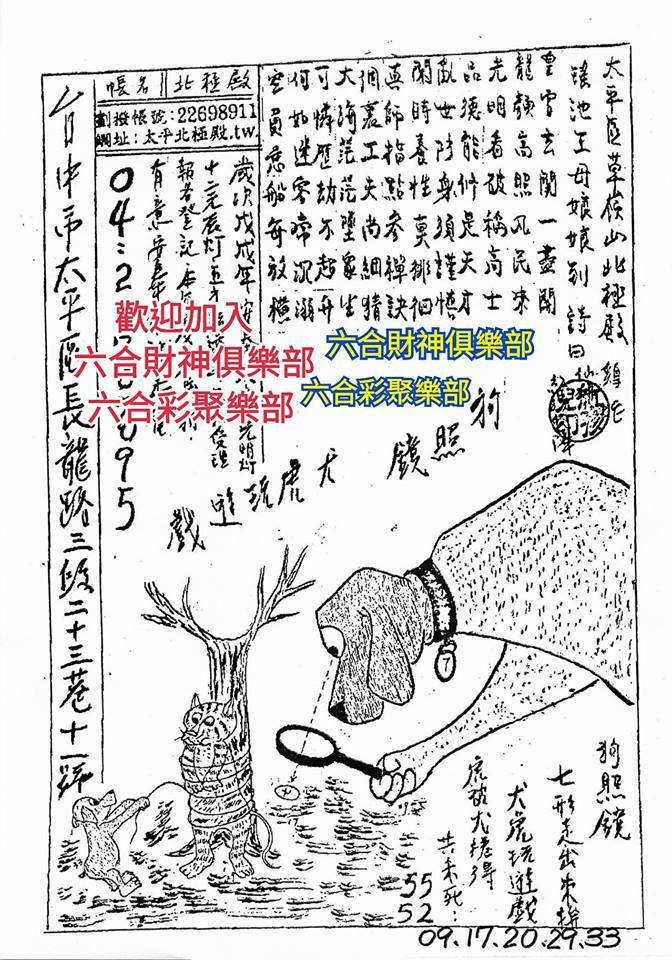 太平區草嶺山北極殿 鷄毛
瑤池王母娘娘到 詩曰
皇宮玄關一盞開
龍顏高照凡民來
光明看破稱高士
品德能修是天才
亂世防身須謹慎
閑時養性莫徘徊
真師指點參禪訣
個裏工夫尚細猜
大海茫茫墜眾生
可憐歷劫不超升
何如迷客常沉溺
空負慈船每放橫
帳名 北極殿
劃撥帳號:22698911
網址:太平北極殿.tw.
歲次戊戌年安
十二元辰灯
報者登記
有意安奉
04:2
895
台中市太平區長龍路三段二十三巷十一號
歡迎加入
六合財神俱樂部
六合彩聚樂部
六合財神俱樂部
六合彩聚樂部
狗照鏡
犬虎玩遊戲
7
狗照鏡
七形走出來
犬虎玩遊戲
虎被犬捲得
共未死:
55
52
09.17.20.29.33